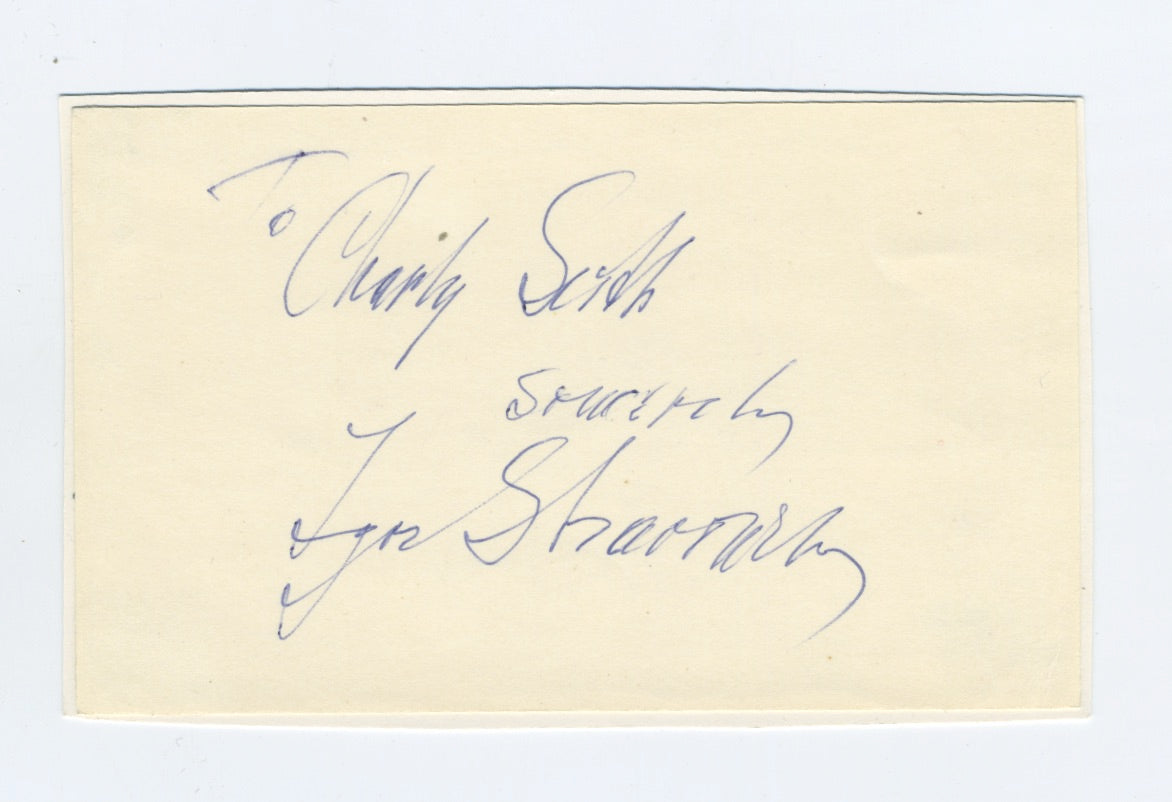 To Charly Scott
Sincerely
Igor Stravinsky